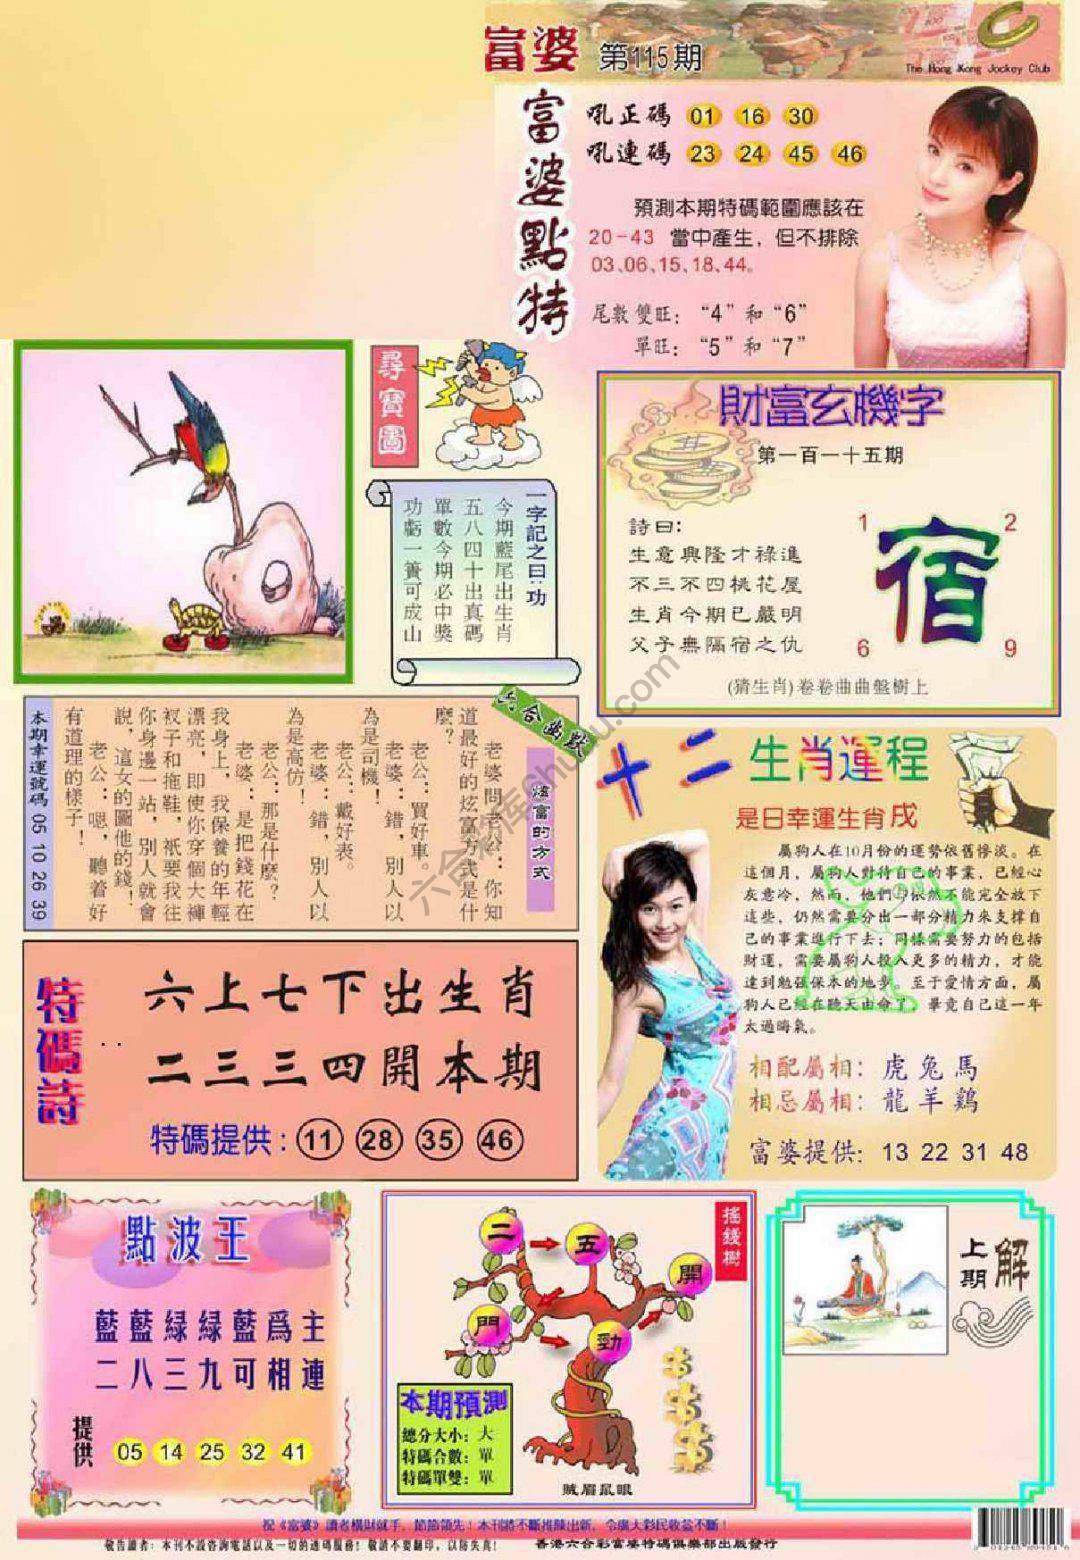 富婆 第115期
The Hong Kong Jockey Club
富婆點特
吼正碼 01 16 30
吼連碼 23 24 45 46
預測本期特碼範圍應該在
20-43 當中產生，但不排除
03、06、15、18、44。
尾數雙旺：“4”和“6”
單旺：“5”和“7”
尋寶圖
一字記之曰：功
今期藍尾出生肖
五八四十出真碼
單數今期必中獎
功虧一簣可成山
財富玄機字
第一百一十五期
詩曰：
生意興隆才祿進
不三不四桃花屋
生肖今期已嚴明
父子無隔宿之仇
1 2
宿
6 9
(猜生肖)卷卷曲曲盤樹上
六合幽默
炫富的方式
老婆問老公：你知
道最好的炫富方式是什
麼？
老公：買好車。
老婆：錯，別人以
為是司機！
老公：戴好表。
老婆：錯，別人以
為是高仿！
老公：那是什麼？
老婆：是把錢花在
我身上，我保養的年輕
漂亮，即使你穿個大褲
衩子和拖鞋，祇要我往
你身邊一站，別人就會
說，這女的圖他的錢！
老公：嗯，聽着好
有道理的樣子！
本期幸運號碼 05 10 26 39
十二生肖運程
是日幸運生肖戌
屬狗人在10月份的運勢依舊慘淡。在
這個月，屬狗人對待自己的事業，已經心
灰意冷，然而，他們依然不能完全放下
這些，仍然需要分出一部分精力來支撐自
己的事業進行下去；同樣需要努力的包括
財運，需要屬狗人投入更多的精力，才能
達到勉強保本的地步。至于愛情方面，屬
狗人已經在聽天由命了，畢竟自己這一年
太過晦氣。
相配屬相：虎兔馬
相忌屬相：龍羊鷄
富婆提供：13 22 31 48
特碼詩
六上七下出生肖
二三三四開本期
特碼提供：11 28 35 46
點波王
藍藍綠綠藍爲主
二八三九可相連
提供 05 14 25 32 41
搖錢樹
二 五 開
門 勁
本期預測
總分大小：大
特碼合數：單
特碼單雙：單
賊眉鼠眼
上期解
祝《富婆》讀者橫財就手，節節領先！本刊將不斷推陳出新，令廣大彩民收益不斷！
敬告讀者：本刊不設咨詢電話以及一切的透碼服務！敬請不要翻印，以防失真！ 香港六合彩富婆特碼俱樂部出版發行